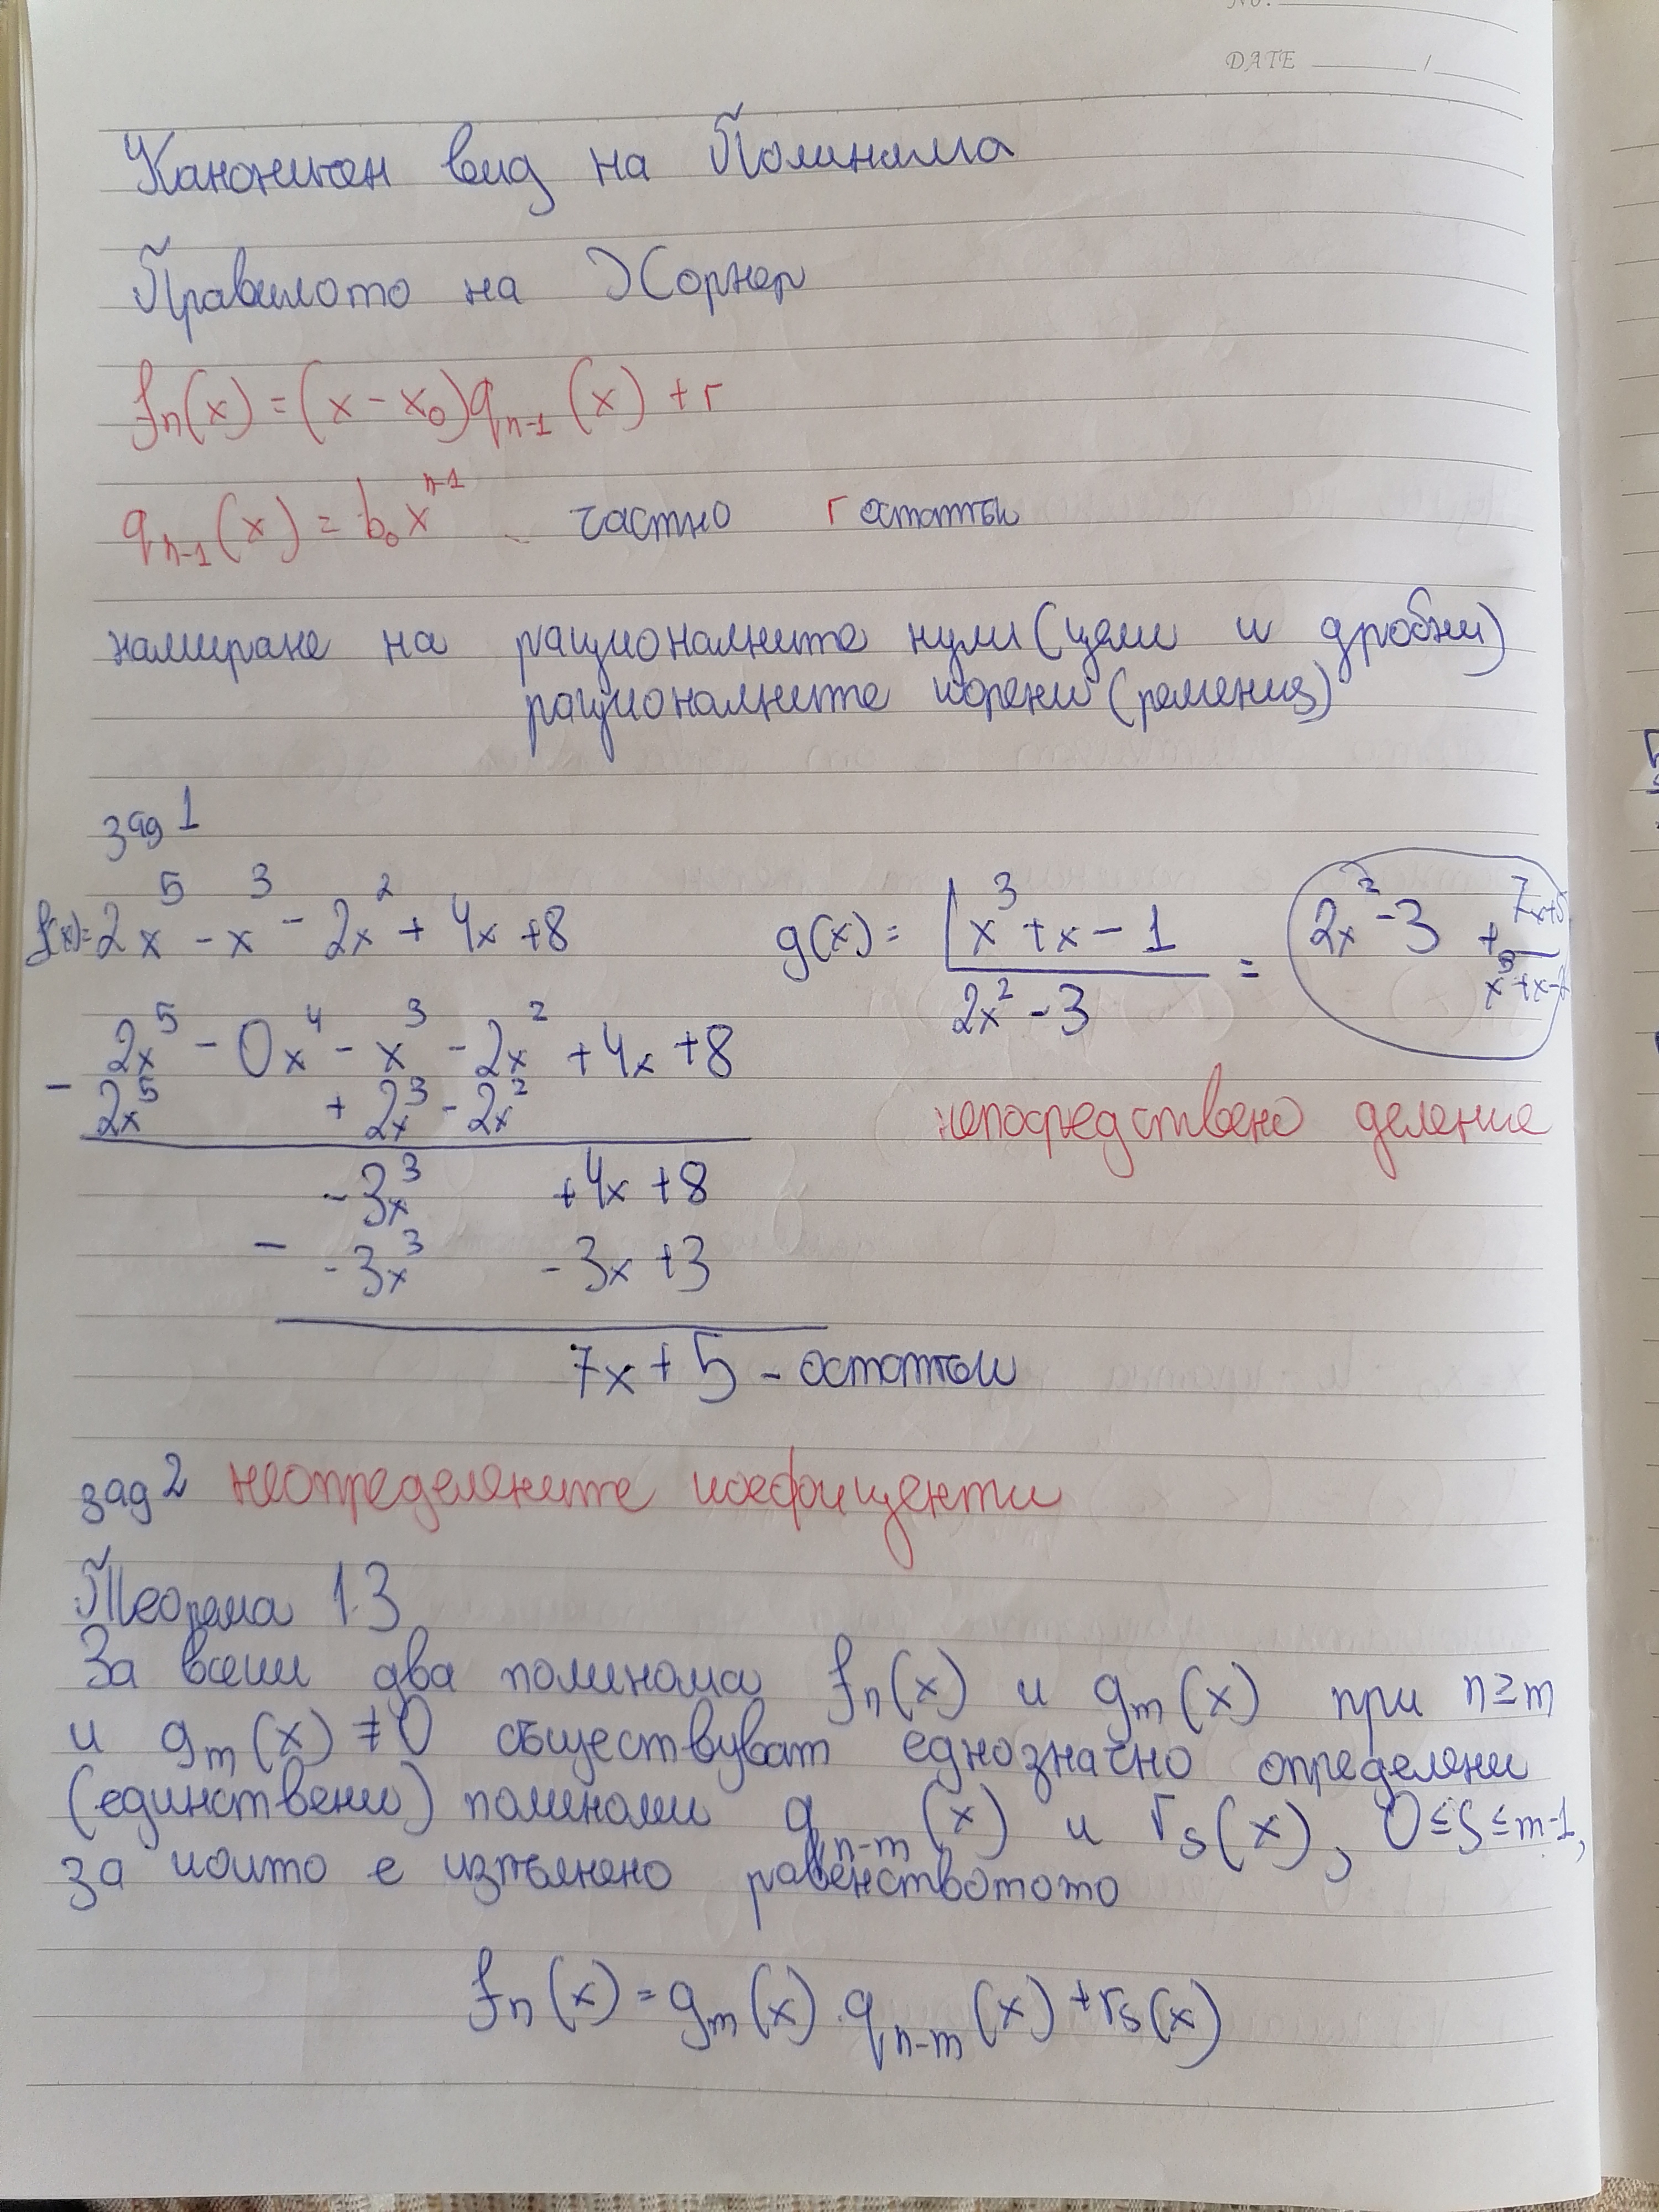 NO.
DATE /
Каноничен вид на Полинома
Правилото на Хорнер
fₙ(x) = (x - x₀)qₙ₋₁(x) + r
qₙ₋₁(x) = b₀xⁿ⁻¹ частно r остатък
намиране на рационалните нули (цели и дробни)
рационалните корени (решения)
зад 1
f(x)= 2x⁵ - x³ - 2x² + 4x + 8 g(x) = x³ + x - 1 = 2x² - 3 + (7x+5)/(x³+x-1)
2x² - 3
2x⁵ - 0x⁴ - x³ - 2x² + 4x + 8
- 2x⁵ + 2x³ - 2x²
непосредствено деление
- 3x³ + 4x + 8
- - 3x³ - 3x + 3
7x + 5 - остатък
зад 2 неопределените коефициенти
Теорема 1.3
За всеки два полинома fₙ(x) и gₘ(x) при n ≥ m
и gₘ(x) ≠ 0 съществуват еднозначно определени
(единствени) полиноми qₙ₋ₘ(x) и rₛ(x), 0 ≤ s ≤ m-1,
за които е изпълнено равенствотото
fₙ(x) = gₘ(x).qₙ₋ₘ(x) + rₛ(x)